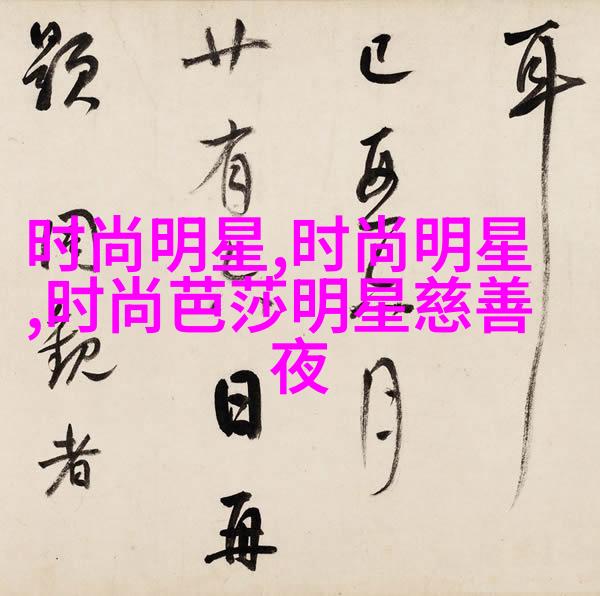 时尚明星,时尚明星
,时尚芭莎明星慈善
夜
耳
已亥月
廿有日再
題同觀者